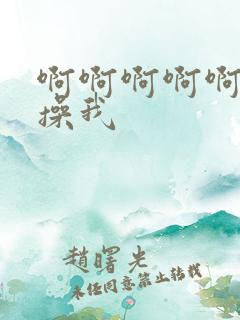 啊啊啊啊啊
操我
趙曙光
未经同意禁止转载